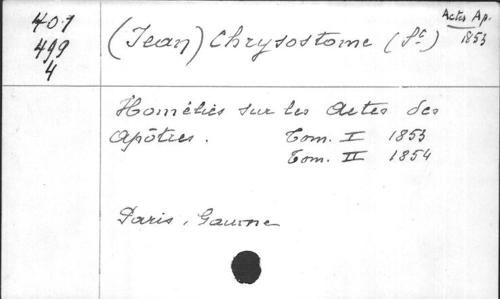 401
499
4
(Jean) Chrysostome (St)
Actes Ap.
1853
Homélies sur les Actes des
Apôtres. Tom. I 1853
Tom. II 1854
Paris, Gaume